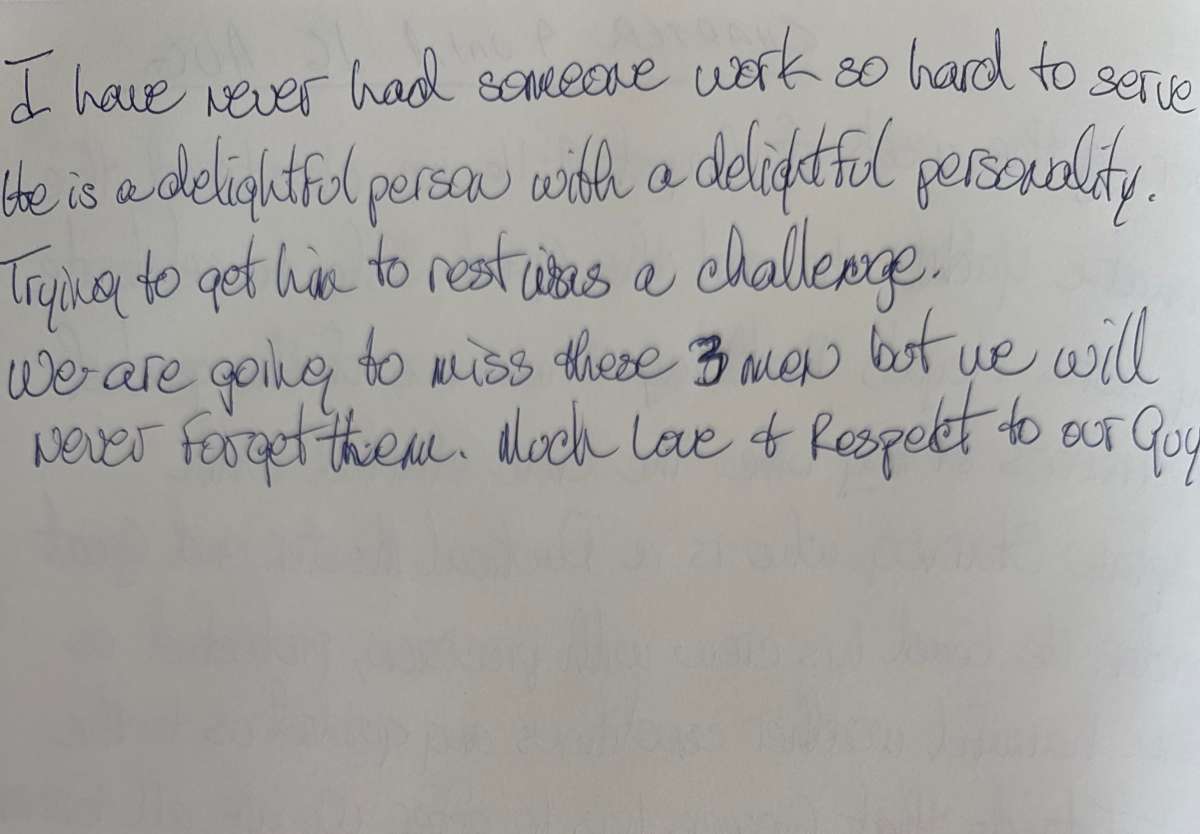 I have never had someone work so hard to serve
He is a delightful person with a delightful personality.
Trying to get him to rest was a challenge.
We are going to miss these 3 men but we will
never forget them. Much Love & Respect to our Guy